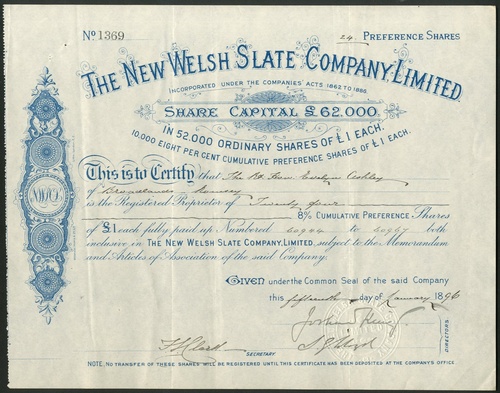 No 1369
24 PREFERENCE SHARES
THE NEW WELSH SLATE COMPANY, LIMITED.
INCORPORATED UNDER THE COMPANIES' ACTS 1862 TO 1886.
SHARE CAPITAL £62.000
IN 52.000 ORDINARY SHARES OF £1 EACH.
10.000 EIGHT PER CENT CUMULATIVE PREFERENCE SHARES OF £1 EACH.
This is to Certify that The Rt. Hon. Evelyn Ashley
of Broadlands Romsey
is the Registered Proprietor of Twenty four
8% CUMULATIVE PREFERENCE SHARES
of £1 each fully paid up Numbered 60944 to 60967 both
inclusive in THE NEW WELSH SLATE COMPANY, LIMITED, subject to the Memorandum
and Articles of Association of the said Company.
GIVEN under the Common Seal of the said Company
this fifteenth day of January 1896
DIRECTORS
SECRETARY
NOTE, NO TRANSFER OF THESE SHARES WILL BE REGISTERED UNTIL THIS CERTIFICATE HAS BEEN DEPOSITED AT THE COMPANY'S OFFICE